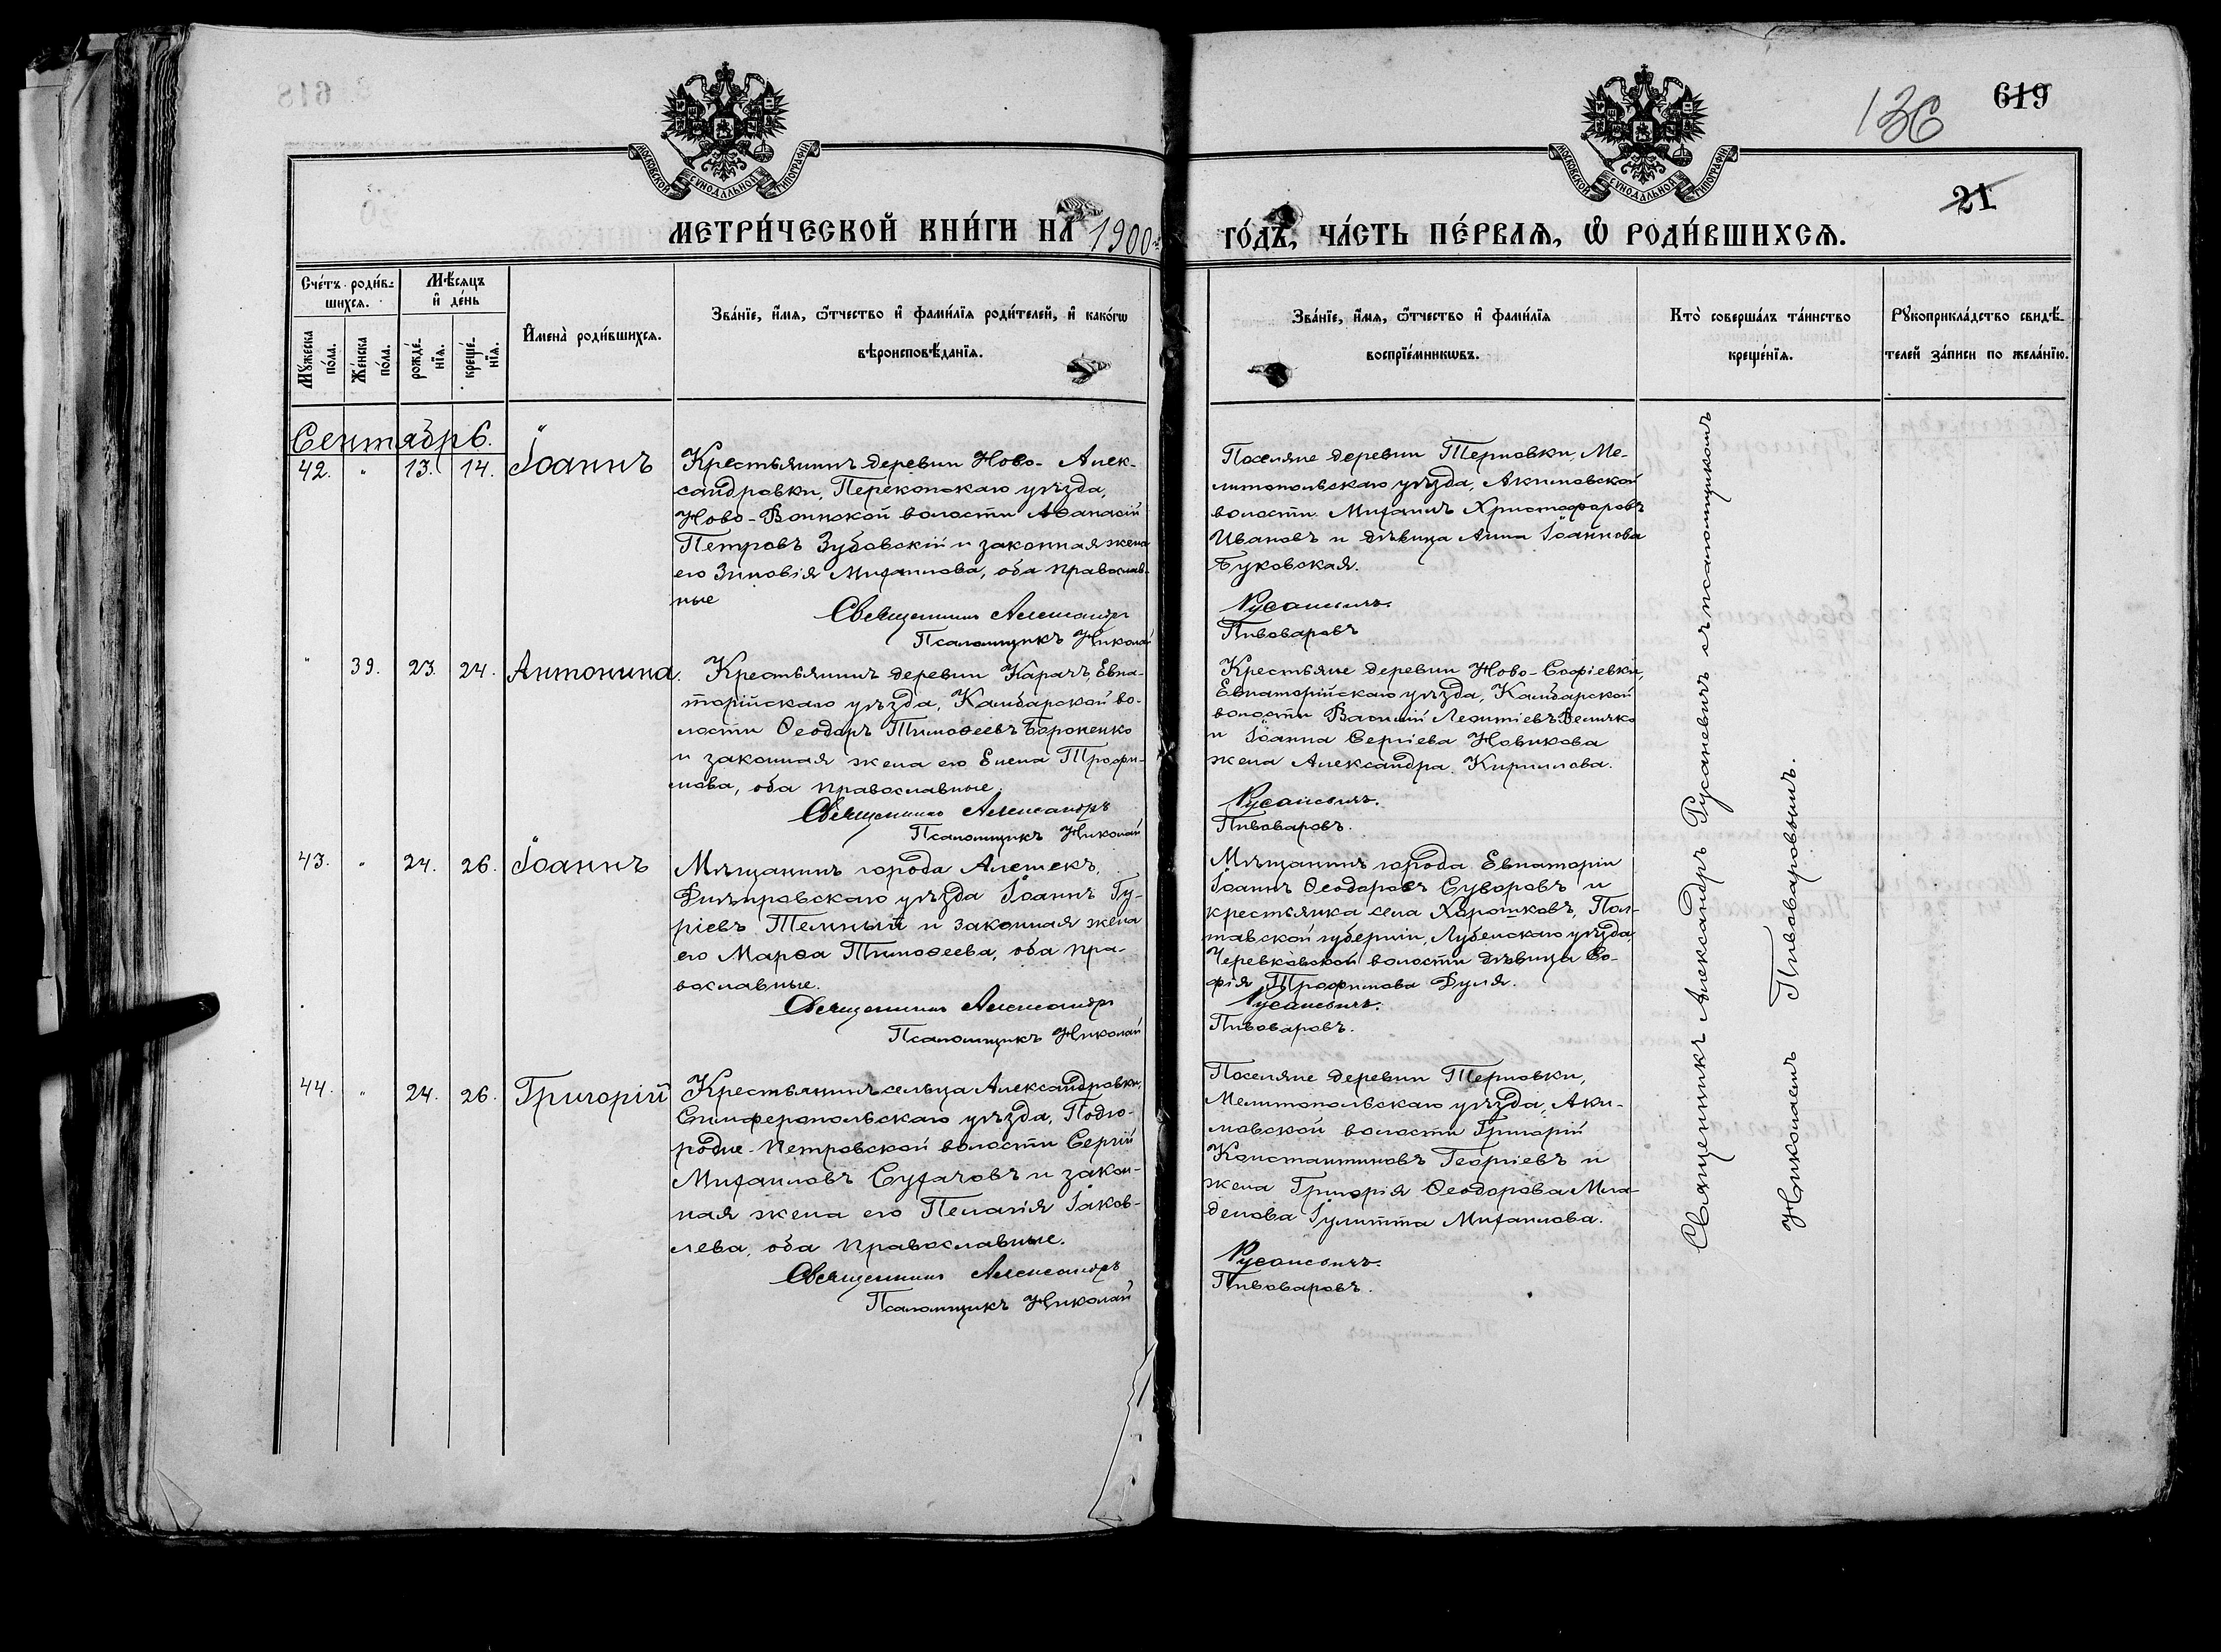 136
619
МОСКОВСКОЙ СѴНОДАЛЬНОЙ ТИПОГРАФІИ
МОСКОВСКОЙ СѴНОДАЛЬНОЙ ТИПОГРАФІИ
21
МЕТРИ́ЧЕСКОЙ КНИ́ГИ НА 1900
ГО́ДЪ, ЧА́СТЬ ПЕ́РВАѦ, Ѡ҆ РОДИ́ВШИХСѦ.
Сче́тъ роди́в-
шихсѧ.
Мꙋ́жеска
по́ла.
Же́нска
по́ла.
Мѣ́сяцъ
и҆ де́нь
рожде́-
нїѧ.
креще́-
нїѧ.
И҆мена̀ роди́вшихсѧ.
Зва́нїе, и҆́мѧ, ѻ҆́тчество и҆ фами́лїѧ роди́телей, и҆ како́гѡ
вѣроисповѣ́данїѧ.
Зва́нїе, и҆́мѧ, ѻ҆́тчество и҆ фами́лїѧ
воспрїе́мникѡвъ.
Кто̀ соверша́лъ та́инство
креще́нїѧ.
Рꙋкоприкла́дство свидѣ́-
телей за́писи по жела́нїю.
Сентябрь.
42. " 13. 14. Іоаннъ
Крестьянинъ деревни Ново-Алек-
сандровки, Перекопскаго уѣзда,
Ново-Воинской волости Аѳанасій
Петровъ Зубовскій и законная жена
его Зиновія Михаилова, оба православ-
ные
Священникъ Александръ
Псаломщикъ Николай
Поселяне деревни Терновки, Ме-
литопольскаго уѣзда, Акимовской
волости Михаилъ Христофоровъ
Ивановъ и дѣвица Анна Іоаннова
Буковская.
Русаневичъ.
Пивоваровъ
" 39. 23. 24. Антонина.
Крестьянинъ деревни Карачъ, Евпа-
торійскаго уѣзда, Камбарской во-
лости Ѳеодоръ Тимоѳеевъ Бороненко
и законная жена его Елена Трофи-
мова, оба православные.
Священникъ Александръ
Псаломщикъ Николай
Крестьяне деревни Ново-Софіевки,
Евпаторійскаго уѣзда, Камбарской
волости Василій Леонтіевъ Величко
и Іоанна Сергіева Новикова
жена Александра Кириллова.
Русаневичъ.
Пивоваровъ.
43. " 24. 26. Іоаннъ
Мѣщанинъ города Алешекъ,
Днѣпровскаго уѣзда Іоаннъ Гу-
ріевъ Темный и законная жена
его Марѳа Тимоѳеева, оба пра-
вославные.
Священникъ Александръ
Псаломщикъ Николай
Мѣщанинъ города Евпаторіи
Іоаннъ Ѳеодоровъ Суворовъ и
крестьянка села Хорошковъ, Пол-
тавской губерніи, Лубенскаго уѣзда,
Черевковской волости дѣвица Со-
фія Трофимова Дуля.
Русаневичъ.
Пивоваровъ.
44. " 24. 26. Григорій
Крестьянинъ сельца Александровки,
Симферопольскаго уѣзда, Подго-
родне-Петровской волости Сергій
Михаиловъ Сухачовъ и закон-
ная жена его Пелагія Іаков-
лева, оба православные.
Священникъ Александръ
Псаломщикъ Николай
Поселяне деревни Терновки,
Мелитопольскаго уѣзда, Аки-
мовской волости Григорій
Константиновъ Георгіевъ и
жена Григорія Ѳеодорова Мла-
денова Іулитта Михаилова.
Русаневичъ.
Пивоваровъ.
Священникъ Александръ Русаневичъ съ псаломщикомъ
Николаемъ Пивоваровымъ.